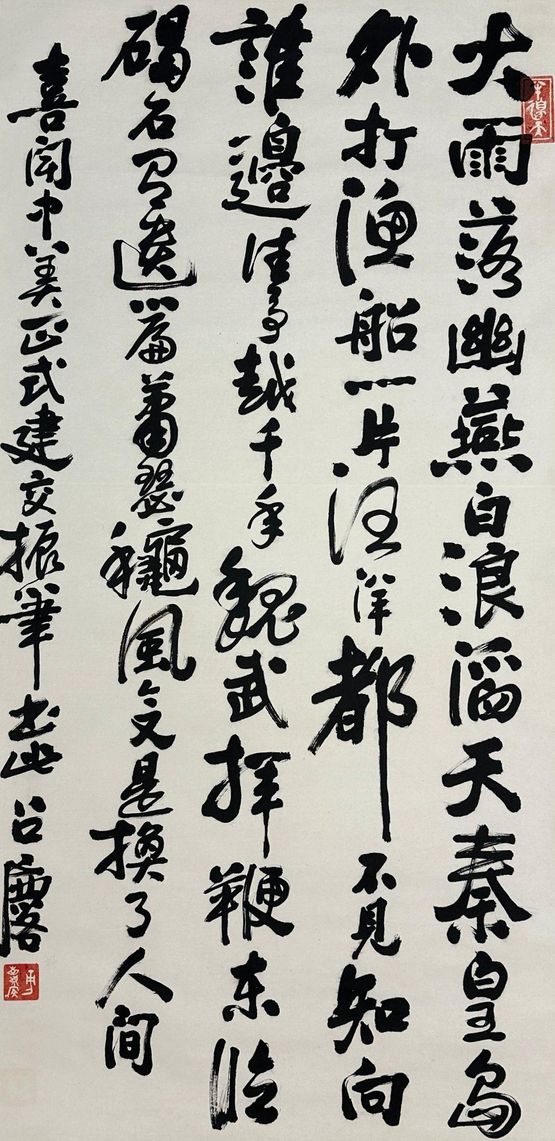 大雨落幽燕白浪滔天秦皇島
外打漁船一片汪洋都不見知向
誰邊往事越千年魏武揮鞭東臨
碣石有遺篇蕭瑟龝風今又是換了人間
喜聞中美正式建交振筆書此